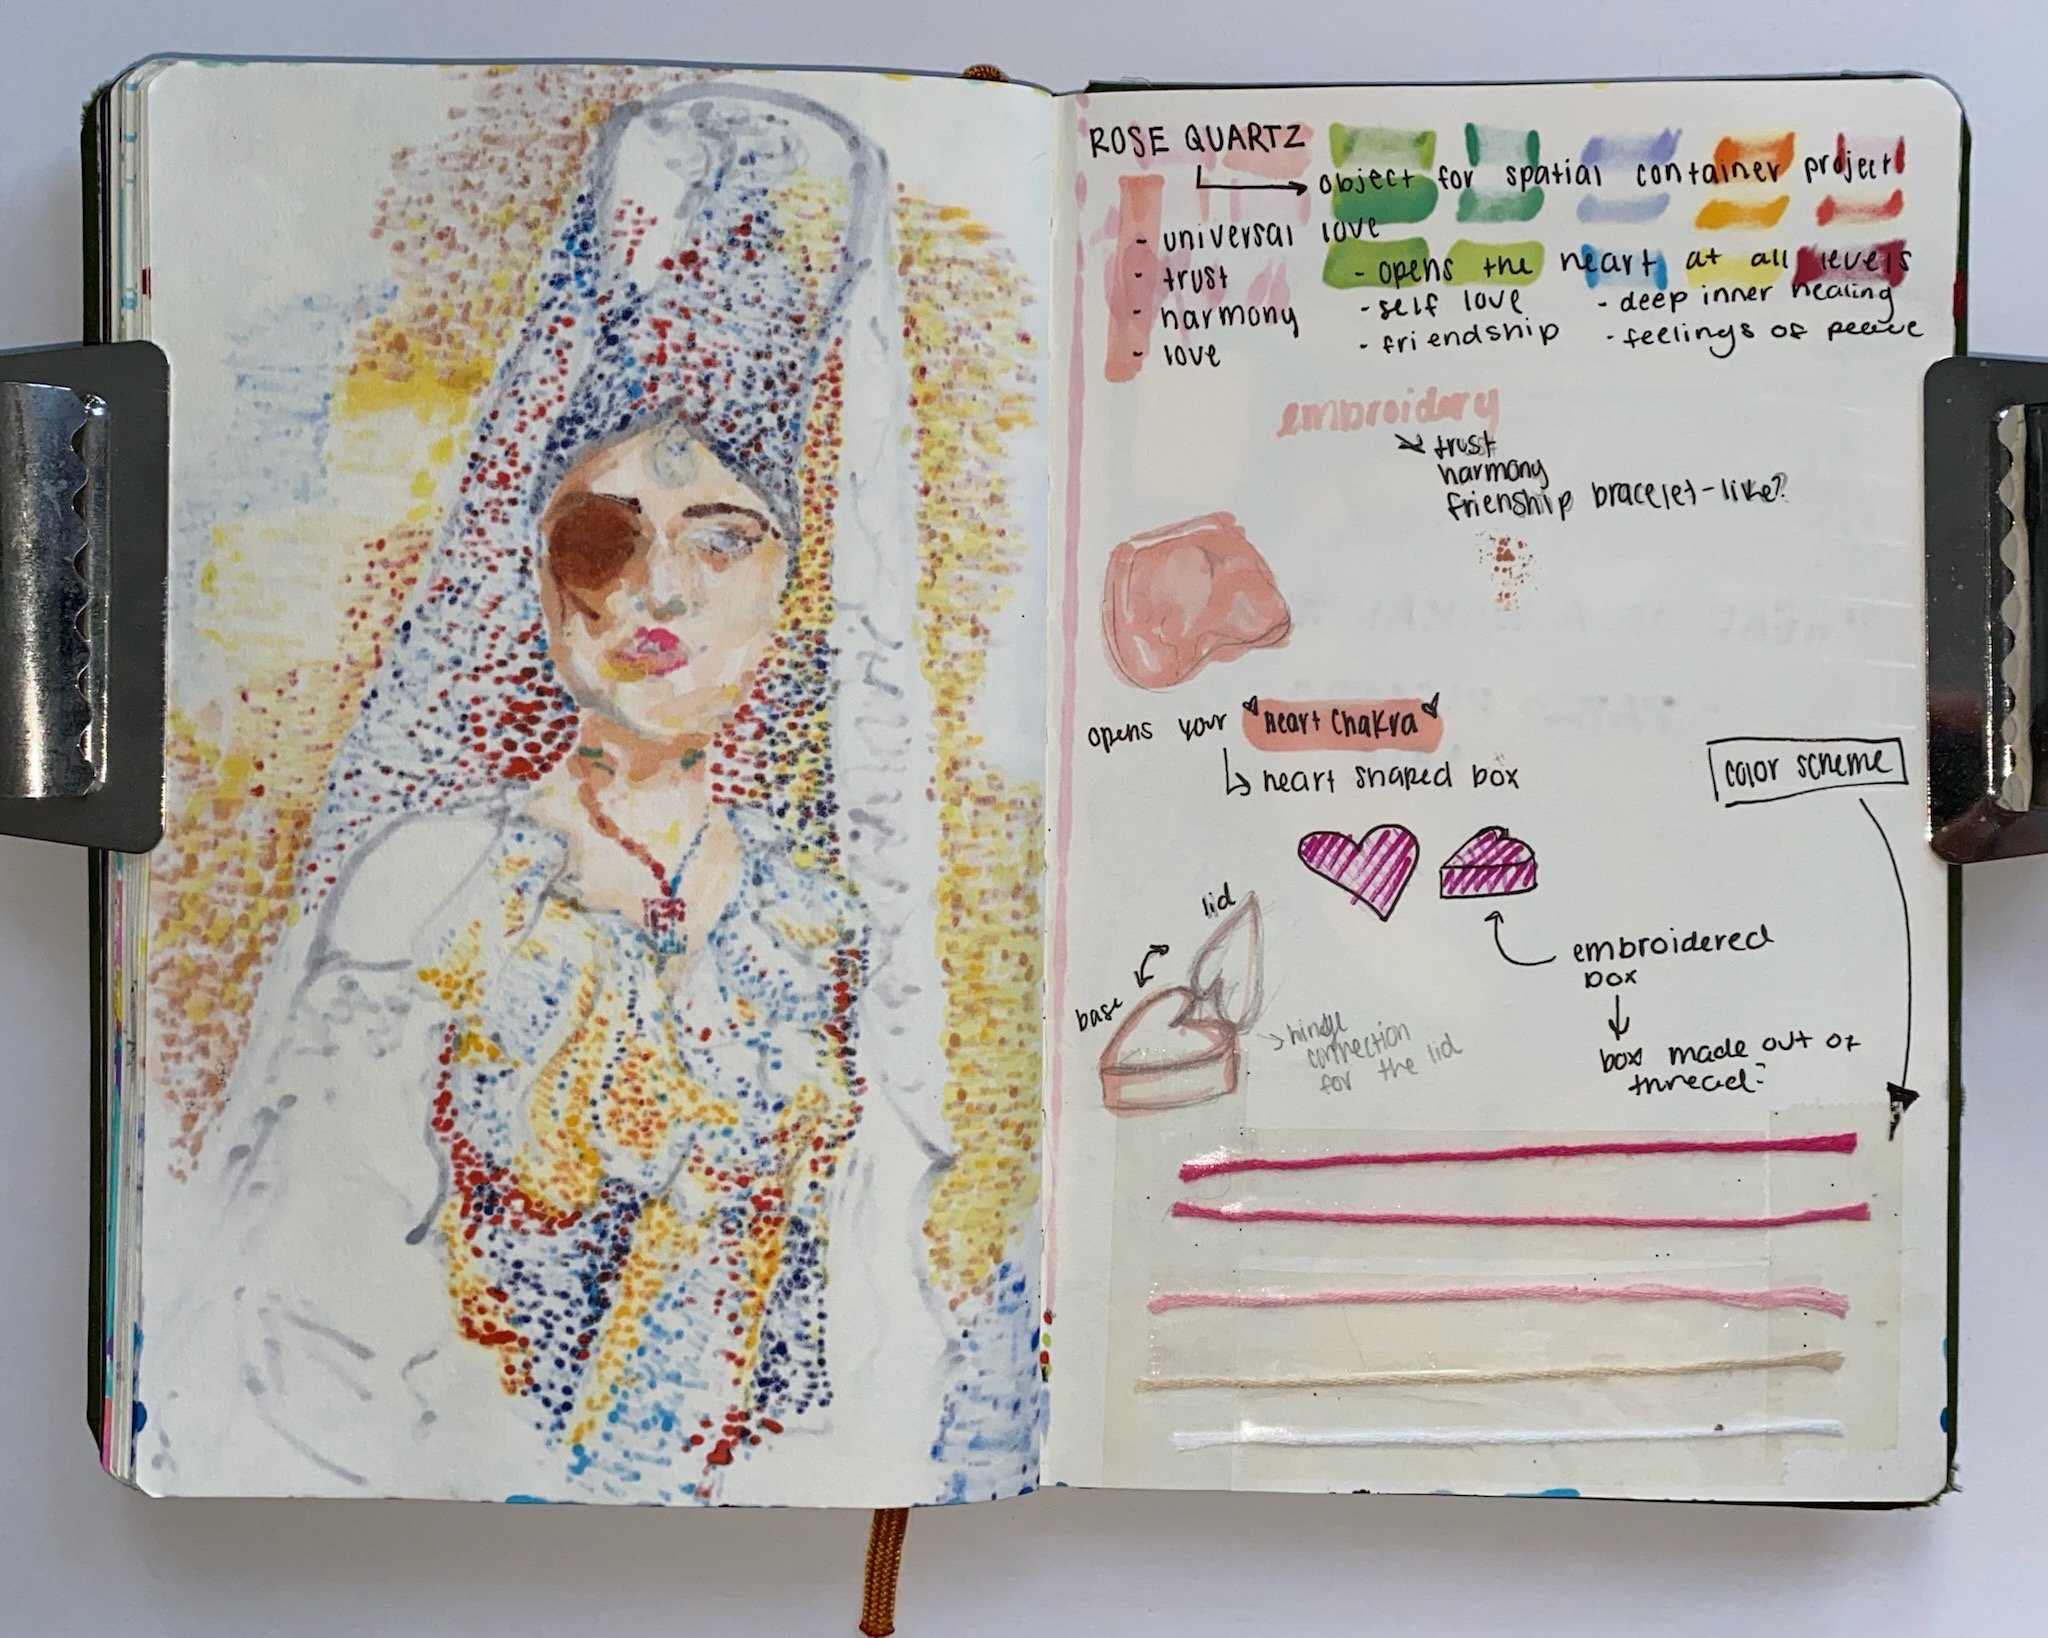 ROSE QUARTZ
object for spatial container project
- universal love
- trust
- harmony
- love
- opens the heart at all levels
- self love
- friendship
- deep inner healing
- feelings of peace
embroidery
trust
harmony
frienship bracelet-like?
opens your "Heart Chakra"
heart shaped box
color scheme
lid
base
hinge
connection
for the lid
embroidered
box
box made out of
thread?